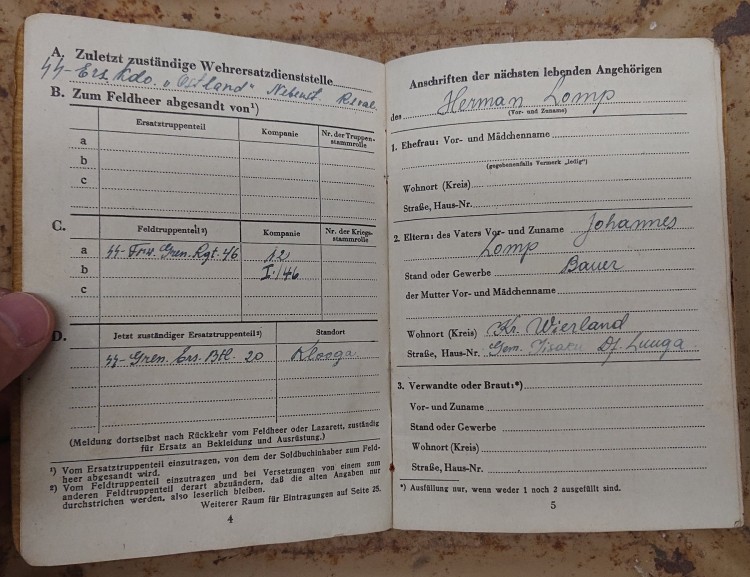 A. Zuletzt zuständige Wehrersatzdienststelle
SS-Ers. Kdo. „Ostland“ Nebenst. Reval
B. Zum Feldheer abgesandt von¹)
Ersatztruppenteil Kompanie Nr. der Truppen-
stammrolle
a
b
c
C. Feldtruppenteil²) Kompanie Nr. der Kriegs-
stammrolle
a SS-Frw. Gren. Rgt. 46 12
b I./46
c
D. Jetzt zuständiger Ersatztruppenteil²) Standort
SS-Gren. Ers. Btl. 20 Klooga
(Meldung dortselbst nach Rückkehr vom Feldheer oder Lazarett, zuständig
für Ersatz an Bekleidung und Ausrüstung.)
¹) Vom Ersatztruppenteil einzutragen, von dem der Soldbuchinhaber zum Feld-
heer abgesandt wird.
²) Vom Feldtruppenteil einzutragen und bei Versetzungen von einem zum
anderen Feldtruppenteil derart abzuändern, daß die alten Angaben nur
durchstrichen werden, also leserlich bleiben.
Weiterer Raum für Eintragungen auf Seite 25.
4
Anschriften der nächsten lebenden Angehörigen
des Herman Lomp
(Vor- und Zuname)
1. Ehefrau: Vor- und Mädchenname
(gegebenenfalls Vermerk „ledig“)
Wohnort (Kreis)
Straße, Haus-Nr.
2. Eltern: des Vaters Vor- und Zuname Johannes
Lomp
Stand oder Gewerbe Bauer
der Mutter Vor- und Mädchenname
Wohnort (Kreis) Kr. Wierland
Straße, Haus-Nr. Gem. Iisaku Df. Luuga
3. Verwandte oder Braut:*)
Vor- und Zuname
Stand oder Gewerbe
Wohnort (Kreis)
Straße, Haus-Nr.
*) Ausfüllung nur, wenn weder 1 noch 2 ausgefüllt sind.
5